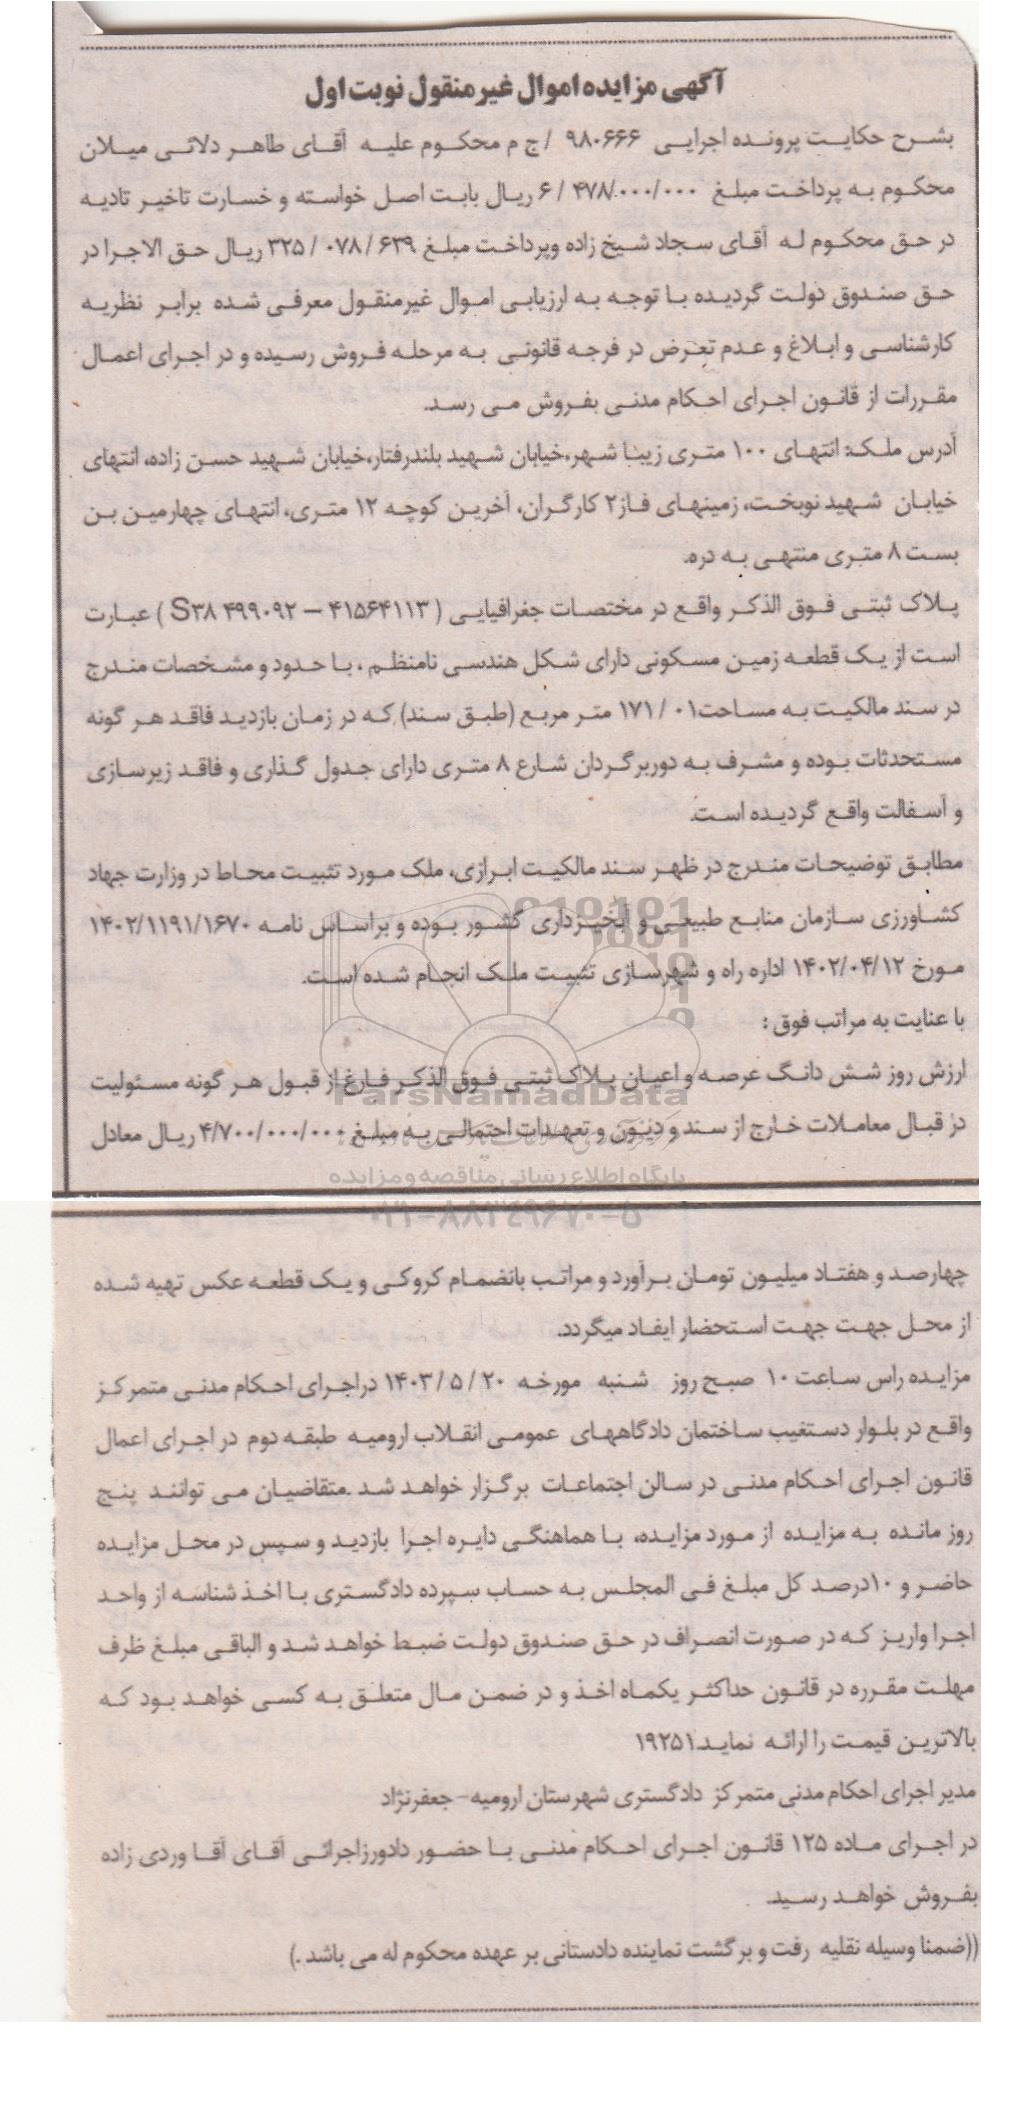 آگهی مزایده اموال غیر منقول نوبت اول
بشرح حکایت پرونده اجرایی ۹۸۰۶۶۶ /ج م محکوم علیه آقای طاهر دلائی میلان
محکوم به پرداخت مبلغ ۶/۴۷۸/۰۰۰/۰۰۰ ریال بابت اصل خواسته و خسارت تاخیر تادیه
در حق محکوم له آقای سجاد شیخ زاده وپرداخت مبلغ ۳۲۵/۰۷۸/۶۳۹ ریال حق الاجرا در
حق صندوق دولت گردیده با توجه به ارزیابی اموال غیرمنقول معرفی شده برابر نظریه
کارشناسی و ابلاغ و عدم تعرض در فرجه قانونی به مرحله فروش رسیده و در اجرای اعمال
مقررات از قانون اجرای احکام مدنی بفروش می رسد.
آدرس ملک: انتهای ۱۰۰ متری زیبا شهر،خیابان شهید بلندرفتار،خیابان شهید حسن زاده، انتهای
خیابان شهید نوبخت، زمینهای فاز۲ کارگران، آخرین کوچه ۱۲ متری، انتهای چهارمین بن
بست ۸ متری منتهی به دره.
پلاک ثبتی فوق الذکر واقع در مختصات جغرافیایی ( ۴۱۵۶۴۱۱۳ – ۴۹۹۰۹۲ S۳۸ ) عبارت
است از یک قطعه زمین مسکونی دارای شکل هندسی نامنظم ، با حدود و مشخصات مندرج
در سند مالکیت به مساحت۱۷۱/۰۱ متر مربع (طبق سند) که در زمان بازدید فاقد هر گونه
مستحدثات بوده و مشرف به دوربرگردان شارع ۸ متری دارای جدول گذاری و فاقد زیرسازی
و آسفالت واقع گردیده است.
مطابق توضیحات مندرج در ظهر سند مالکیت ابرازی، ملک مورد تثبیت محاط در وزارت جهاد
کشاورزی سازمان منابع طبیعی و آبخیزداری کشور بوده و براساس نامه ۱۴۰۲/۱۱۹۱/۱۶۷۰
مورخ ۱۴۰۲/۰۴/۱۲ اداره راه و شهرسازی تثبیت ملک انجام شده است.
با عنایت به مراتب فوق :
ارزش روز شش دانگ عرصه و اعیان پلاک ثبتی فوق الذکر فارغ از قبول هر گونه مسئولیت
ParsNamadData
در قبال معاملات خارج از سند و دیون و تعهدات احتمالی به مبلغ ۴/۷۰۰/۰۰۰/۰۰۰ ریال معادل
پایگاه اطلاع رسانی مناقصه و مزایده
۰۲۱-۸۸۳۴۹۶۷۰-۵
چهارصد و هفتاد میلیون تومان برآورد و مراتب بانضمام کروکی و یک قطعه عکس تهیه شده
از محل جهت جهت استحضار ایفاد میگردد.
مزایده راس ساعت ۱۰ صبح روز شنبه مورخه ۱۴۰۳/۵/۲۰ دراجرای احکام مدنی متمرکز
واقع در بلوار دستغیب ساختمان دادگاههای عمومی انقلاب ارومیه طبقه دوم در اجرای اعمال
قانون اجرای احکام مدنی در سالن اجتماعات برگزار خواهد شد .متقاضیان می توانند پنج
روز مانده به مزایده از مورد مزایده، با هماهنگی دایره اجرا بازدید و سپس در محل مزایده
حاضر و ۱۰درصد کل مبلغ فی المجلس به حساب سپرده دادگستری با اخذ شناسه از واحد
اجرا واریز که در صورت انصراف در حق صندوق دولت ضبط خواهد شد و الباقی مبلغ ظرف
مهلت مقرره در قانون حداکثر یکماه اخذ و در ضمن مال متعلق به کسی خواهد بود که
بالاترین قیمت را ارائه نماید.۱۹۲۵۱
مدیر اجرای احکام مدنی متمرکز دادگستری شهرستان ارومیه- جعفرنژاد
در اجرای ماده ۱۲۵ قانون اجرای احکام مدنی با حضور دادورزاجرائی آقای آقا وردی زاده
بفروش خواهد رسید.
((ضمنا وسیله نقلیه رفت و برگشت نماینده دادستانی بر عهده محکوم له می باشد .)